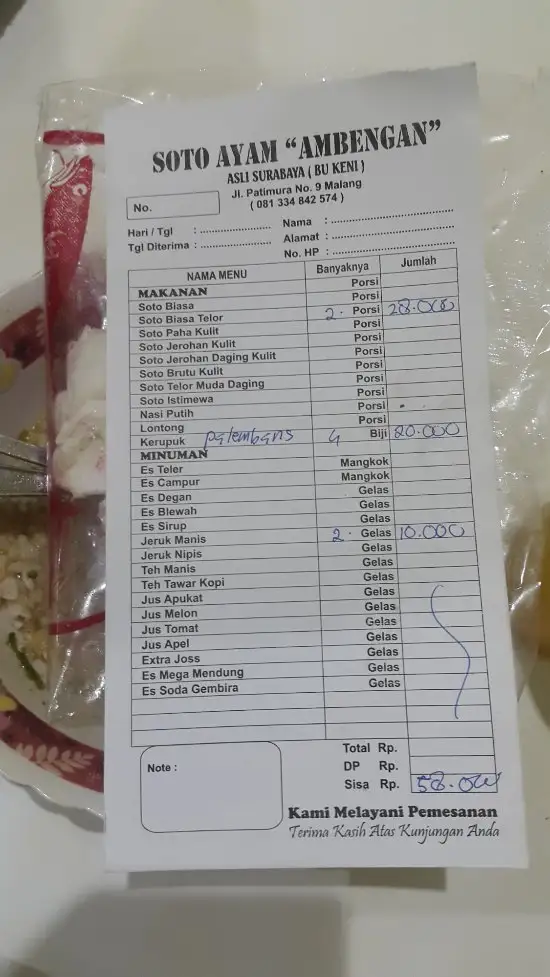 SOTO AYAM “AMBENGAN”
ASLI SURABAYA ( BU KENI )
Jl. Patimura No. 9 Malang
( 081 334 842 574 )
No.
Hari / Tgl :
Tgl Diterima :
Nama :
Alamat :
No. HP :
NAMA MENU Banyaknya Jumlah
MAKANAN Porsi
Soto Biasa Porsi
Soto Biasa Telor 2. Porsi 28.000
Soto Paha Kulit Porsi
Soto Jerohan Kulit Porsi
Soto Jerohan Daging Kulit Porsi
Soto Brutu Kulit Porsi
Soto Telor Muda Daging Porsi
Soto Istimewa Porsi
Nasi Putih Porsi
Lontong Porsi
Kerupuk palembang 4 Biji 20.000
MINUMAN
Es Teler Mangkok
Es Campur Mangkok
Es Degan Gelas
Es Blewah Gelas
Es Sirup Gelas
Jeruk Manis 2. Gelas 10.000
Jeruk Nipis Gelas
Teh Manis Gelas
Teh Tawar Kopi Gelas
Jus Apukat Gelas
Jus Melon Gelas
Jus Tomat Gelas
Jus Apel Gelas
Extra Joss Gelas
Es Mega Mendung Gelas
Es Soda Gembira Gelas
Total Rp.
DP Rp.
Sisa Rp. 58.000
Note :
Kami Melayani Pemesanan
Terima Kasih Atas Kunjungan Anda